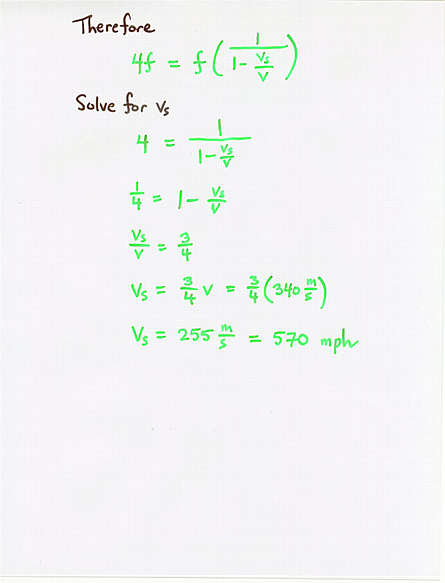 Therefore
4f = f(1/(1 - Vs/V))
Solve for Vs
4 = 1/(1 - Vs/V)
1/4 = 1 - Vs/V
Vs/V = 3/4
Vs = 3/4 V = 3/4 (340 m/s)
Vs = 255 m/s = 570 mph